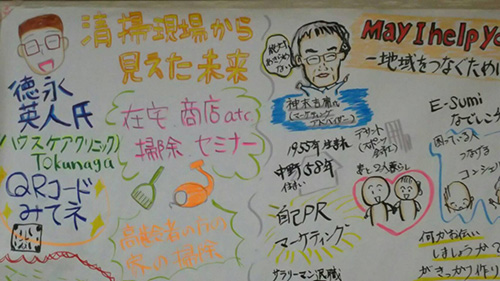 清掃現場から
見えた未来
徳永
英人氏
ハウスケアクリニック
TOKUNAGA
QRコード
みてネ
在宅 商店 atc
掃除 セミナー
高齢者の
家の掃除
絶対
あきらめ
ない
神木
マーケティング
アドバイザー
1955年生まれ
中野58年
住まい
自己PR
マーケティング
サラリーマン退職
アスリート
スポーツ
2人暮らし
May I help Yo
ー地域をつなぐため
E-Sumi
なでしこ
困っている人
つなげる
コンシ
何かお伝い
しましょうか
がきっかけ作り